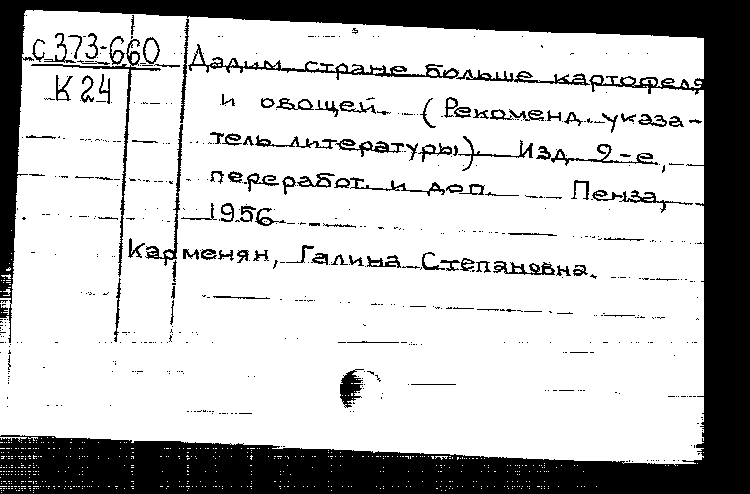 с 373-660
К 24
Дадим стране больше картофеля
и овощей. (Рекоменд. указа-
тель литературы). Изд. 2-е,
переработ. и доп. Пенза,
1956.
Карменян, Галина Степановна.